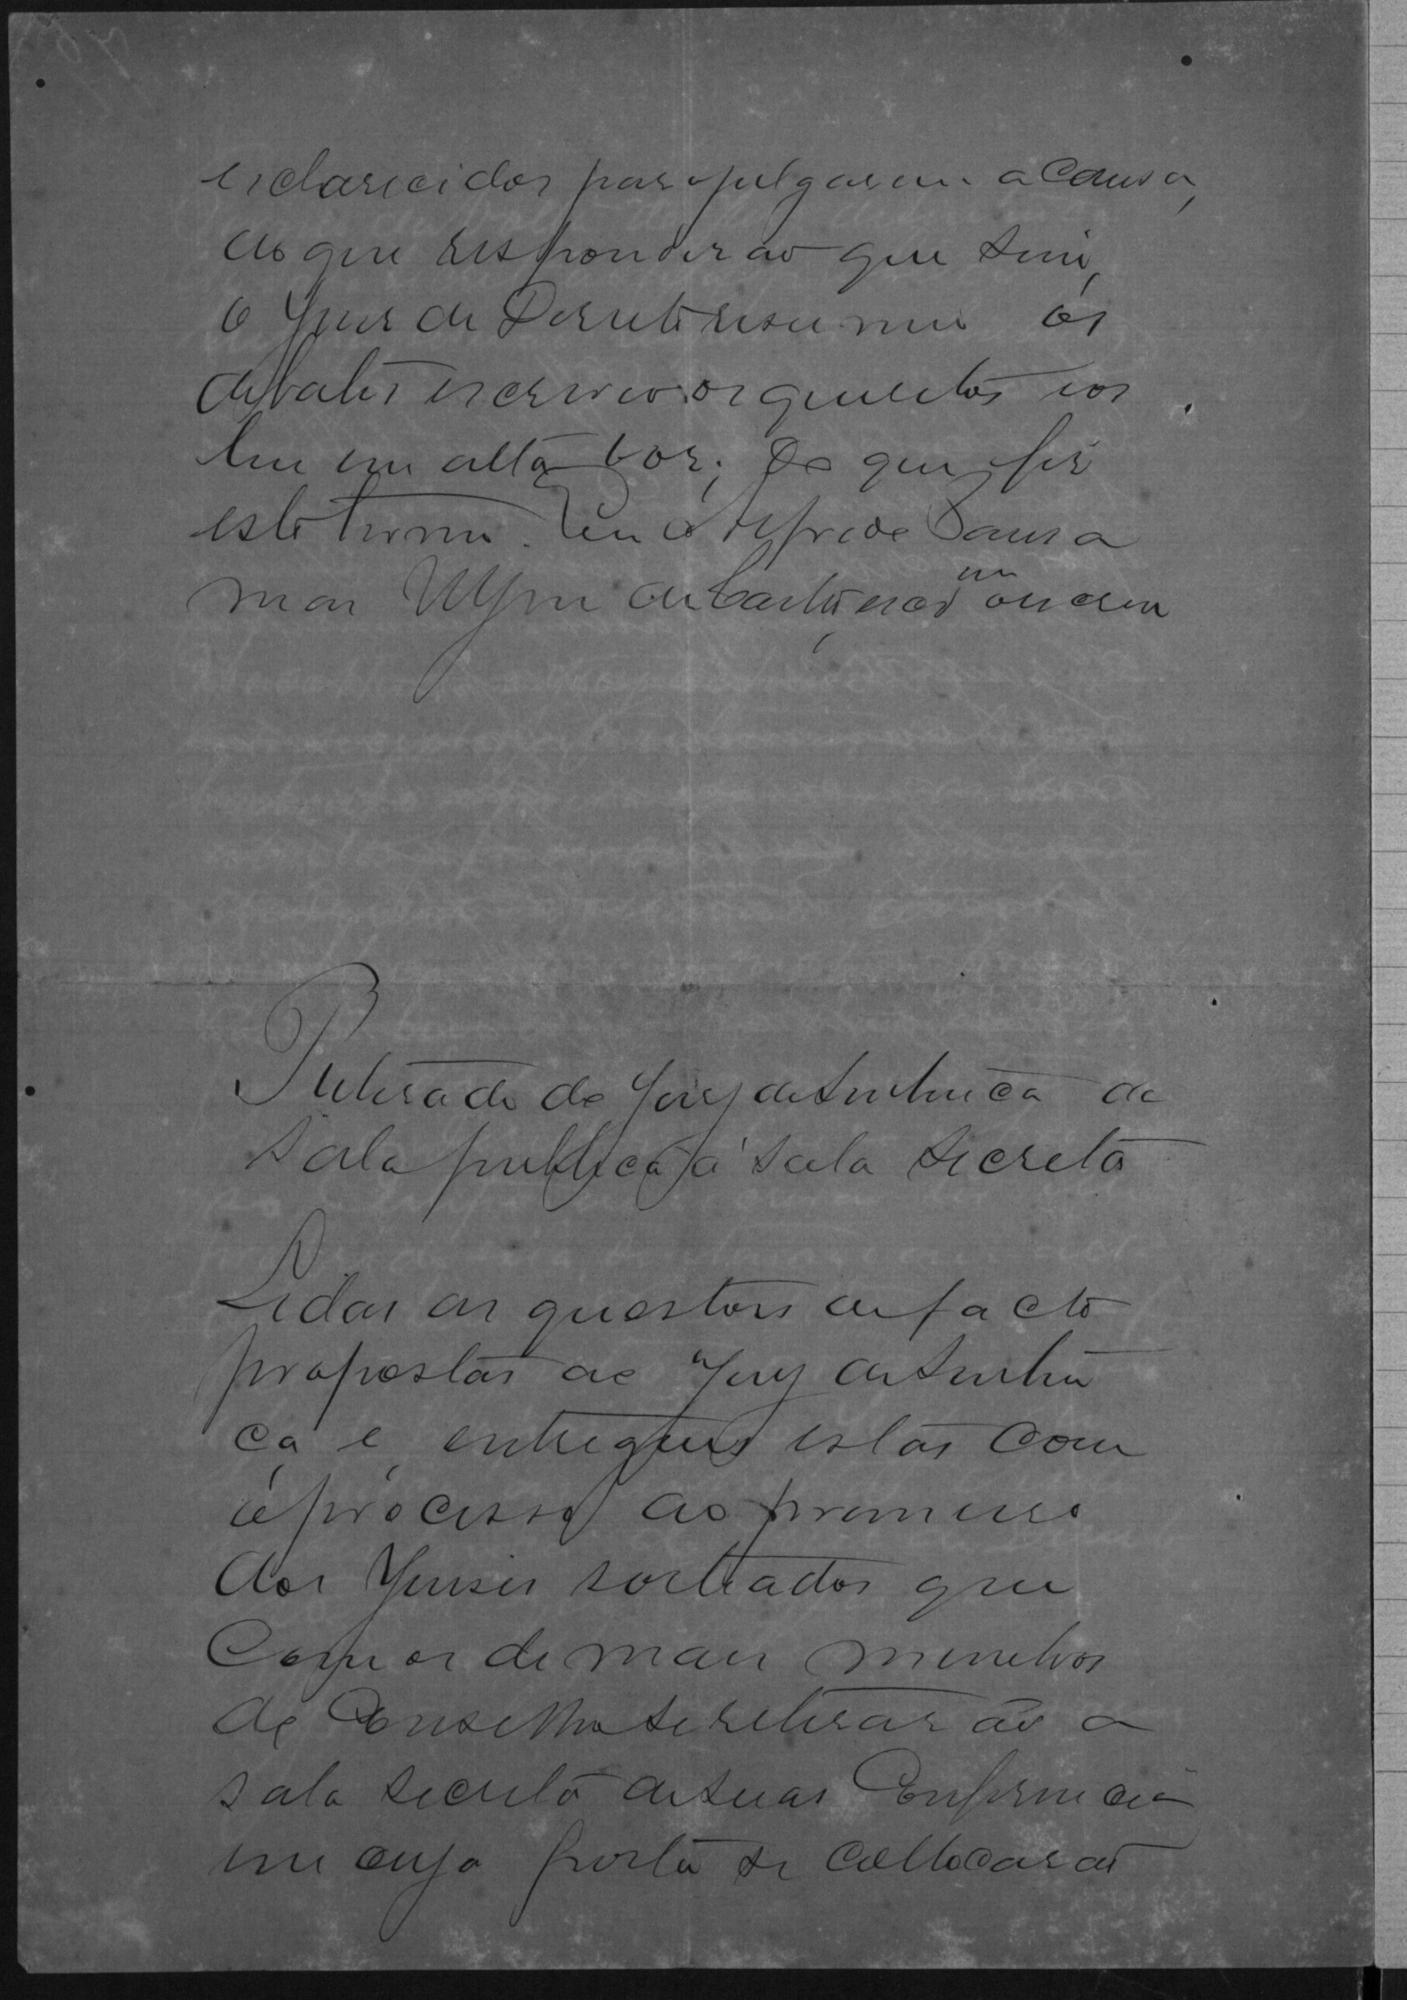 esclarecidos para julgarem a causa,
ao que responderão que sim,
o Juiz de Direito resumiu os
debates escreveu os quesitos e os
leu em alta voz; do que fiz
este termo. Eu Alfredo
mar de Castro, escrivão
Retirada do Jury de Sentença da
sala publica á sala secreta
Lidas as questões de facto
propostas ao Jury de Senten
ça e, entregues estas com
o processo ao primeiro
dos Juises sorteados que
com os demais membros
do Conselho se retirarão a
sala secreta de suas Conferencias
em cuja porta se collocarão